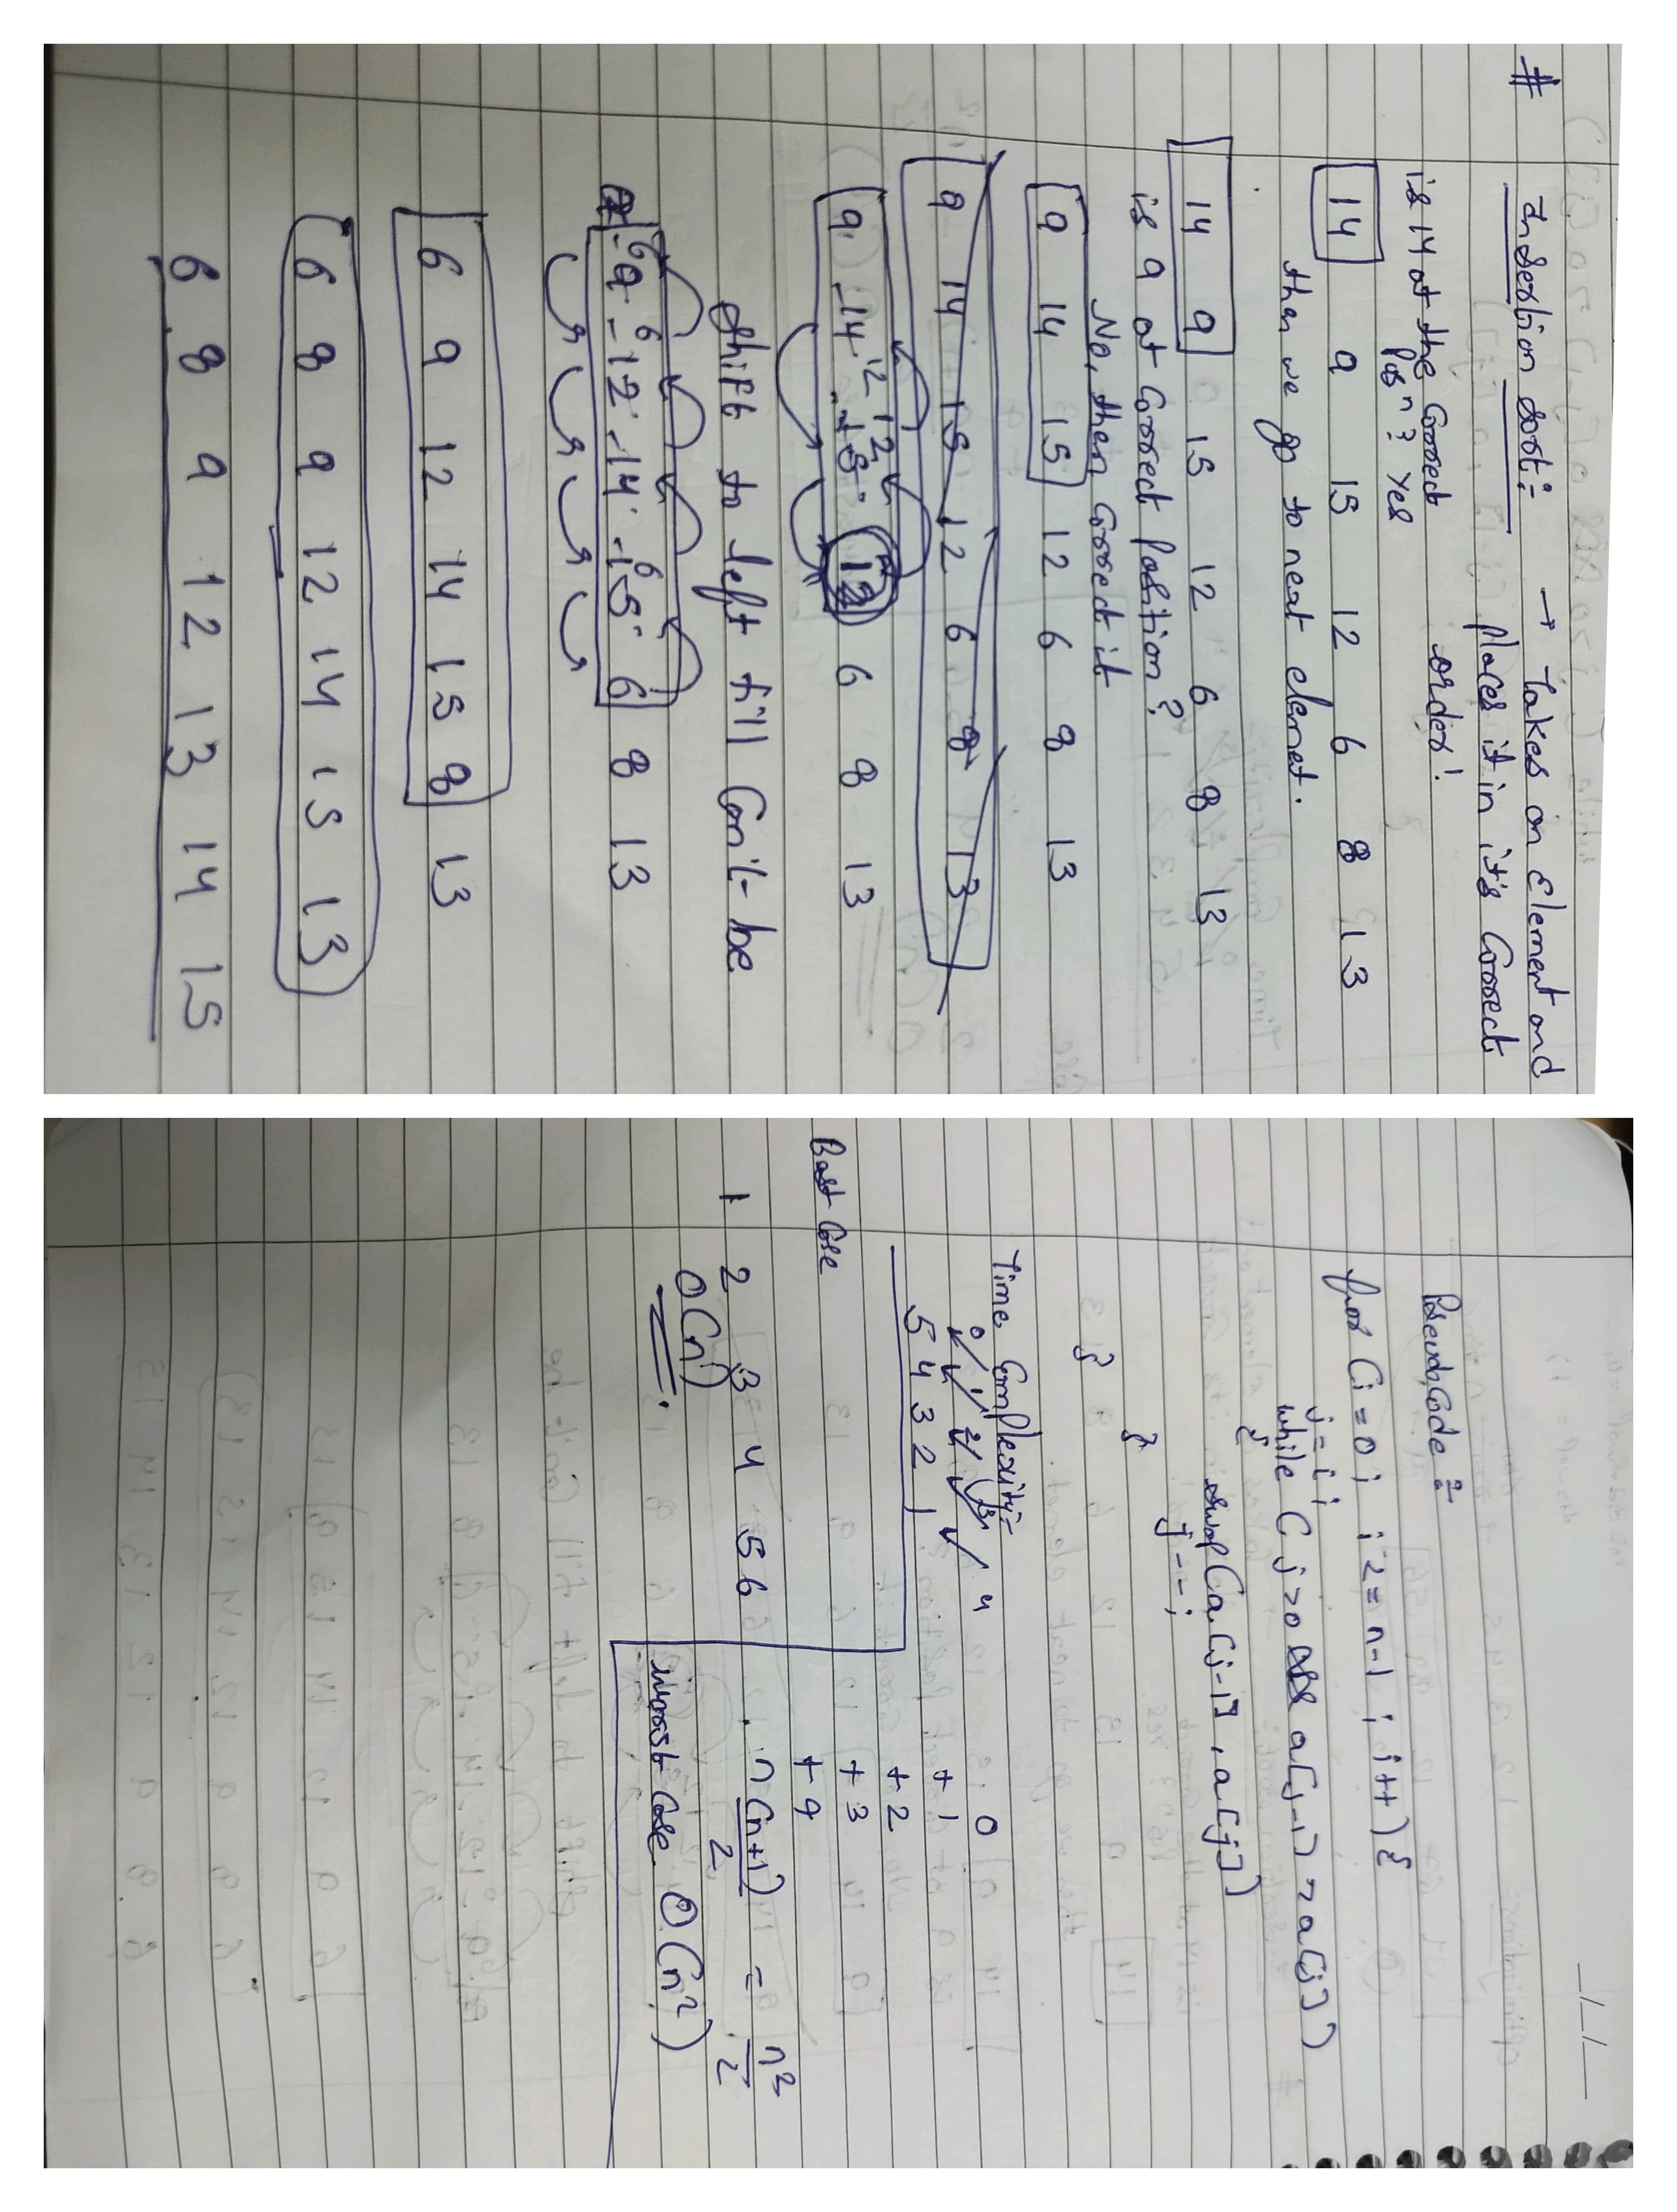 # Insertion Sort:- → Takes an Element and
places it in it's Correct
order!
is 14 at the Correct
posn? Yes
14 9 15 12 6 8 13
then we go to next elemet.
14 9 15 12 6 8 13
is 9 at Correct Position?
No, then Correct it
9 14 15 12 6 8 13
9 14 15 12 6 8 13
12 12
9 14 15 12 6 8 13
Shift to left till Con't be
6 6 6
9 12 14 15 6 8 13
6 9 12 14 15 8 13
6 8 9 12 14 15 13
6 8 9 12 13 14 15
Pseudo Code :-
for (i=0; i<=n-1; i++) {
j=i;
while ( j>0 && a[j-1] > a[j])
{
swap(a[j-1], a[j])
j--;
}
}
Time Complexity:-
0 1 2 3 4
5 4 3 2 1
0
+1
+2
+3
+4
n(n+1)/2 = n²/2
worst Case O(n²)
Best Case
1 2 3 4 5 6
O(n)